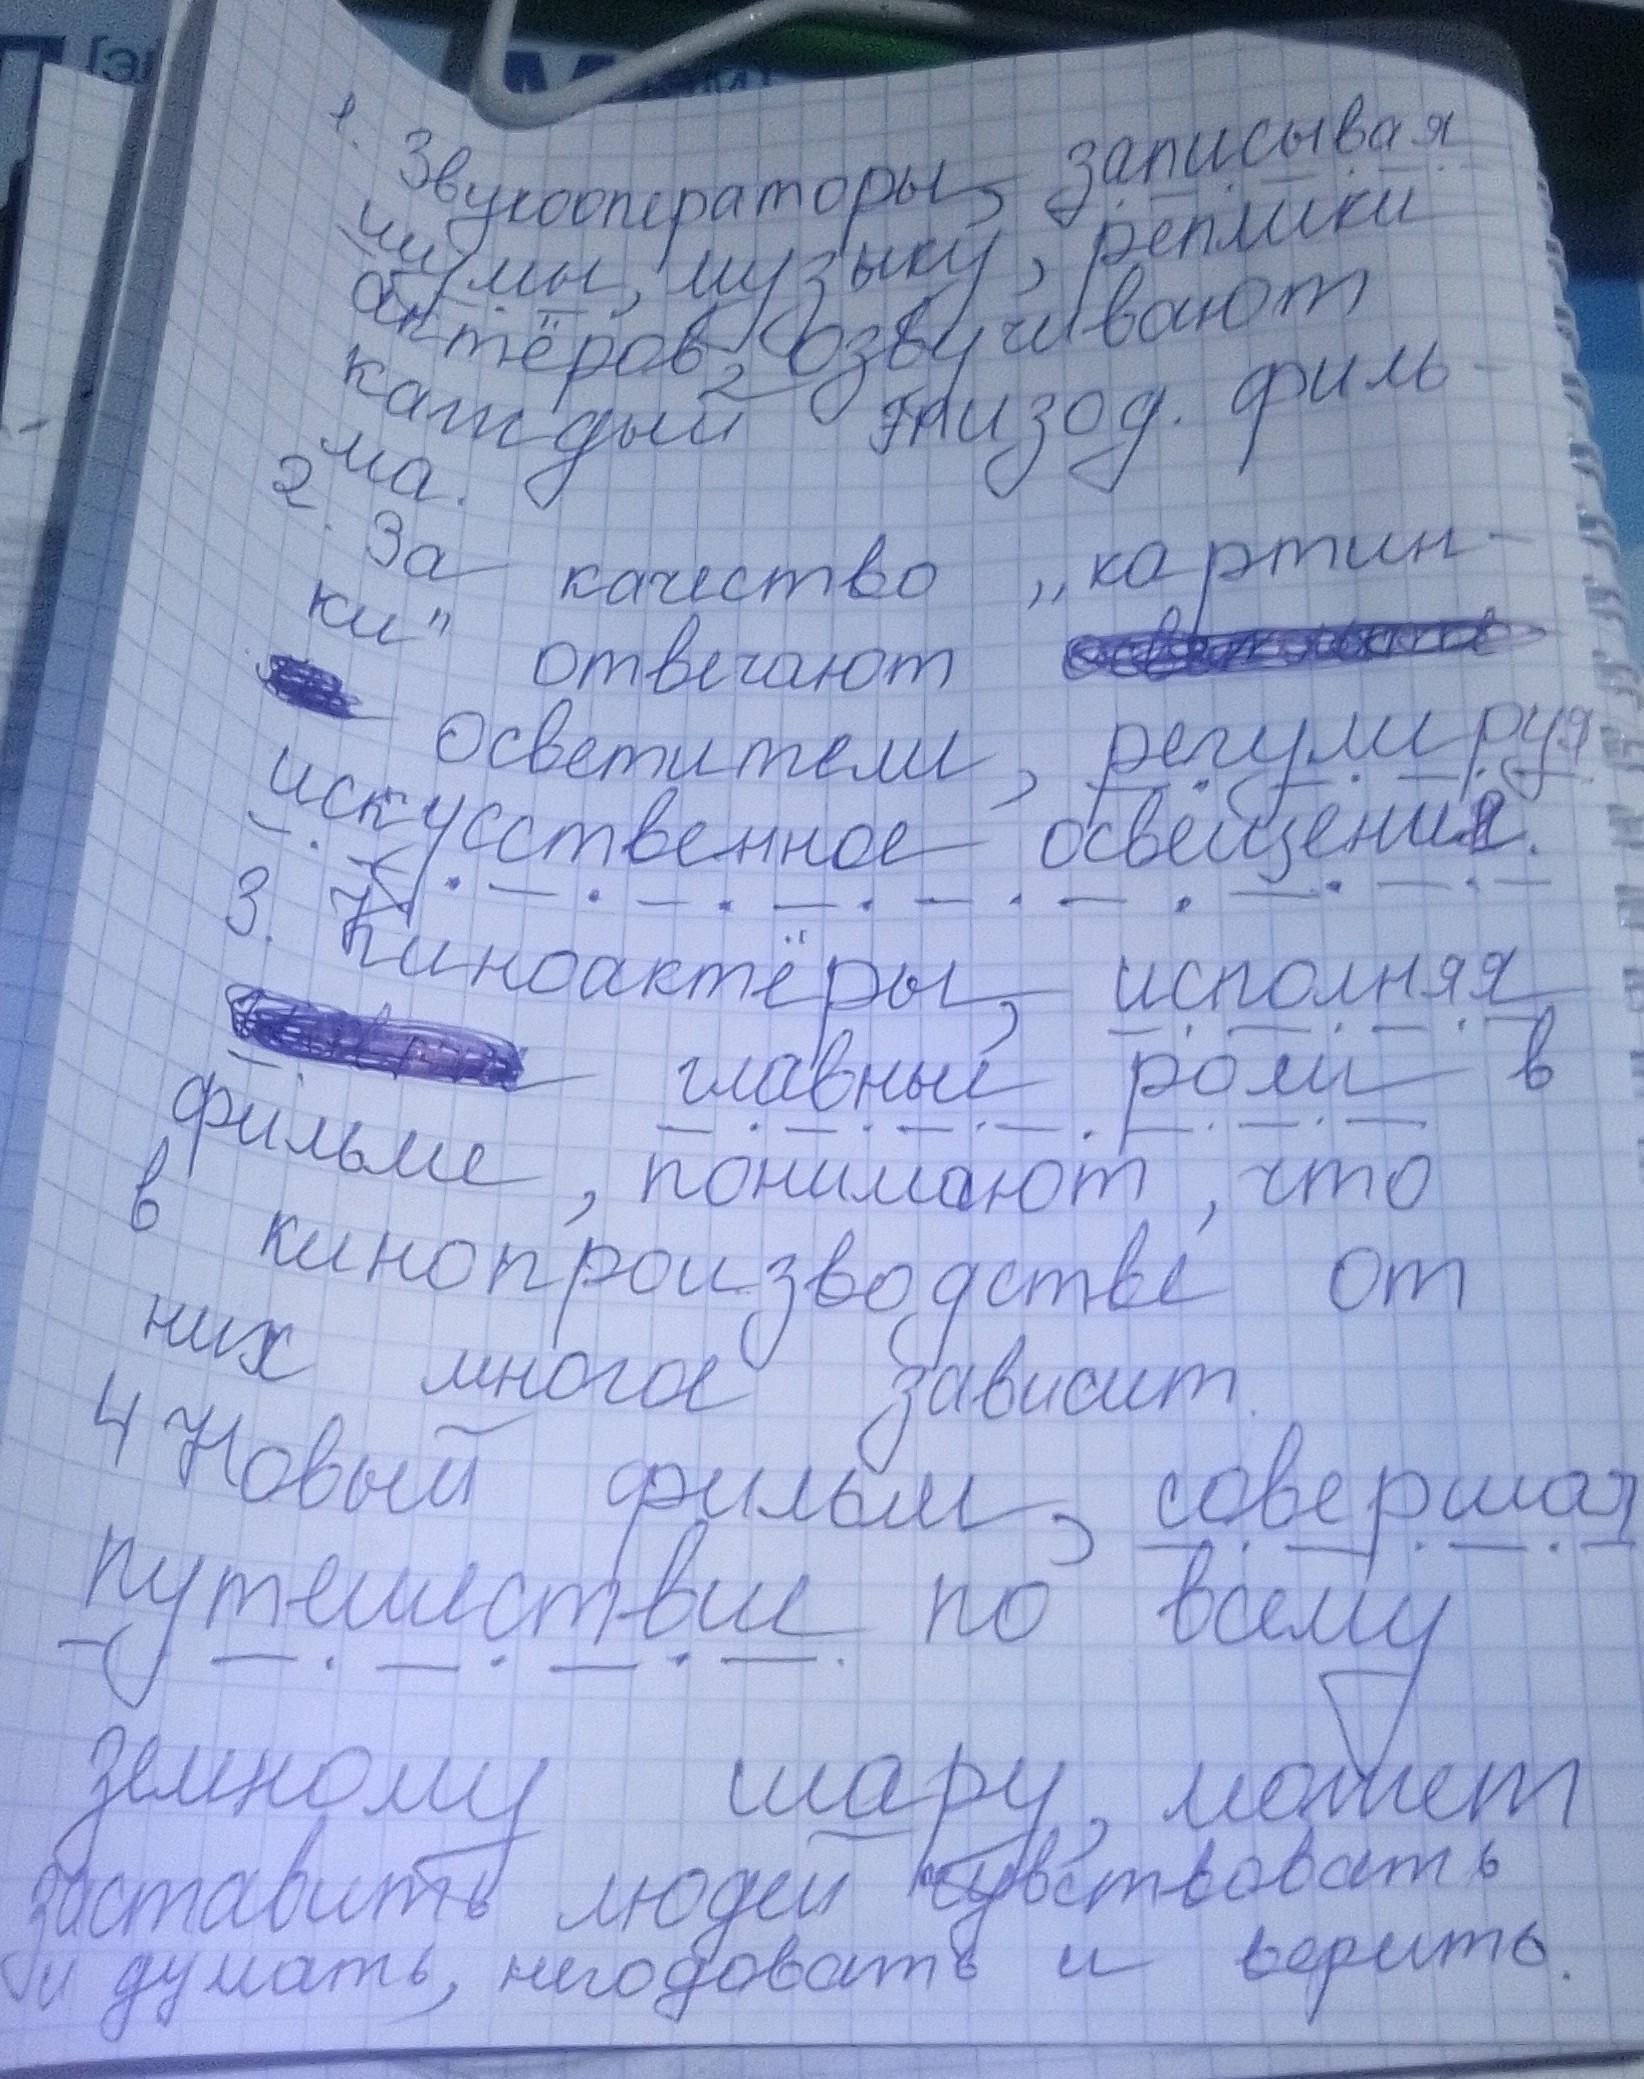 1. Звукооператоры, записывая
шумы, музыку, реплики
актёров, озвучивают
каждый эпизод филь-
ма.
2. За качество „картин-
ки" отвечают
осветители, регулируя
искусственное освещения.
3. Киноактёры, исполняя
главный роли в
фильме, понимают, что
в кинопроизводстве от
них многое зависит.
4 Новый фильм, совершая
путешествие по всему
земному шару, может
заставить людей чувствовать
и думать, негодовать и верить.